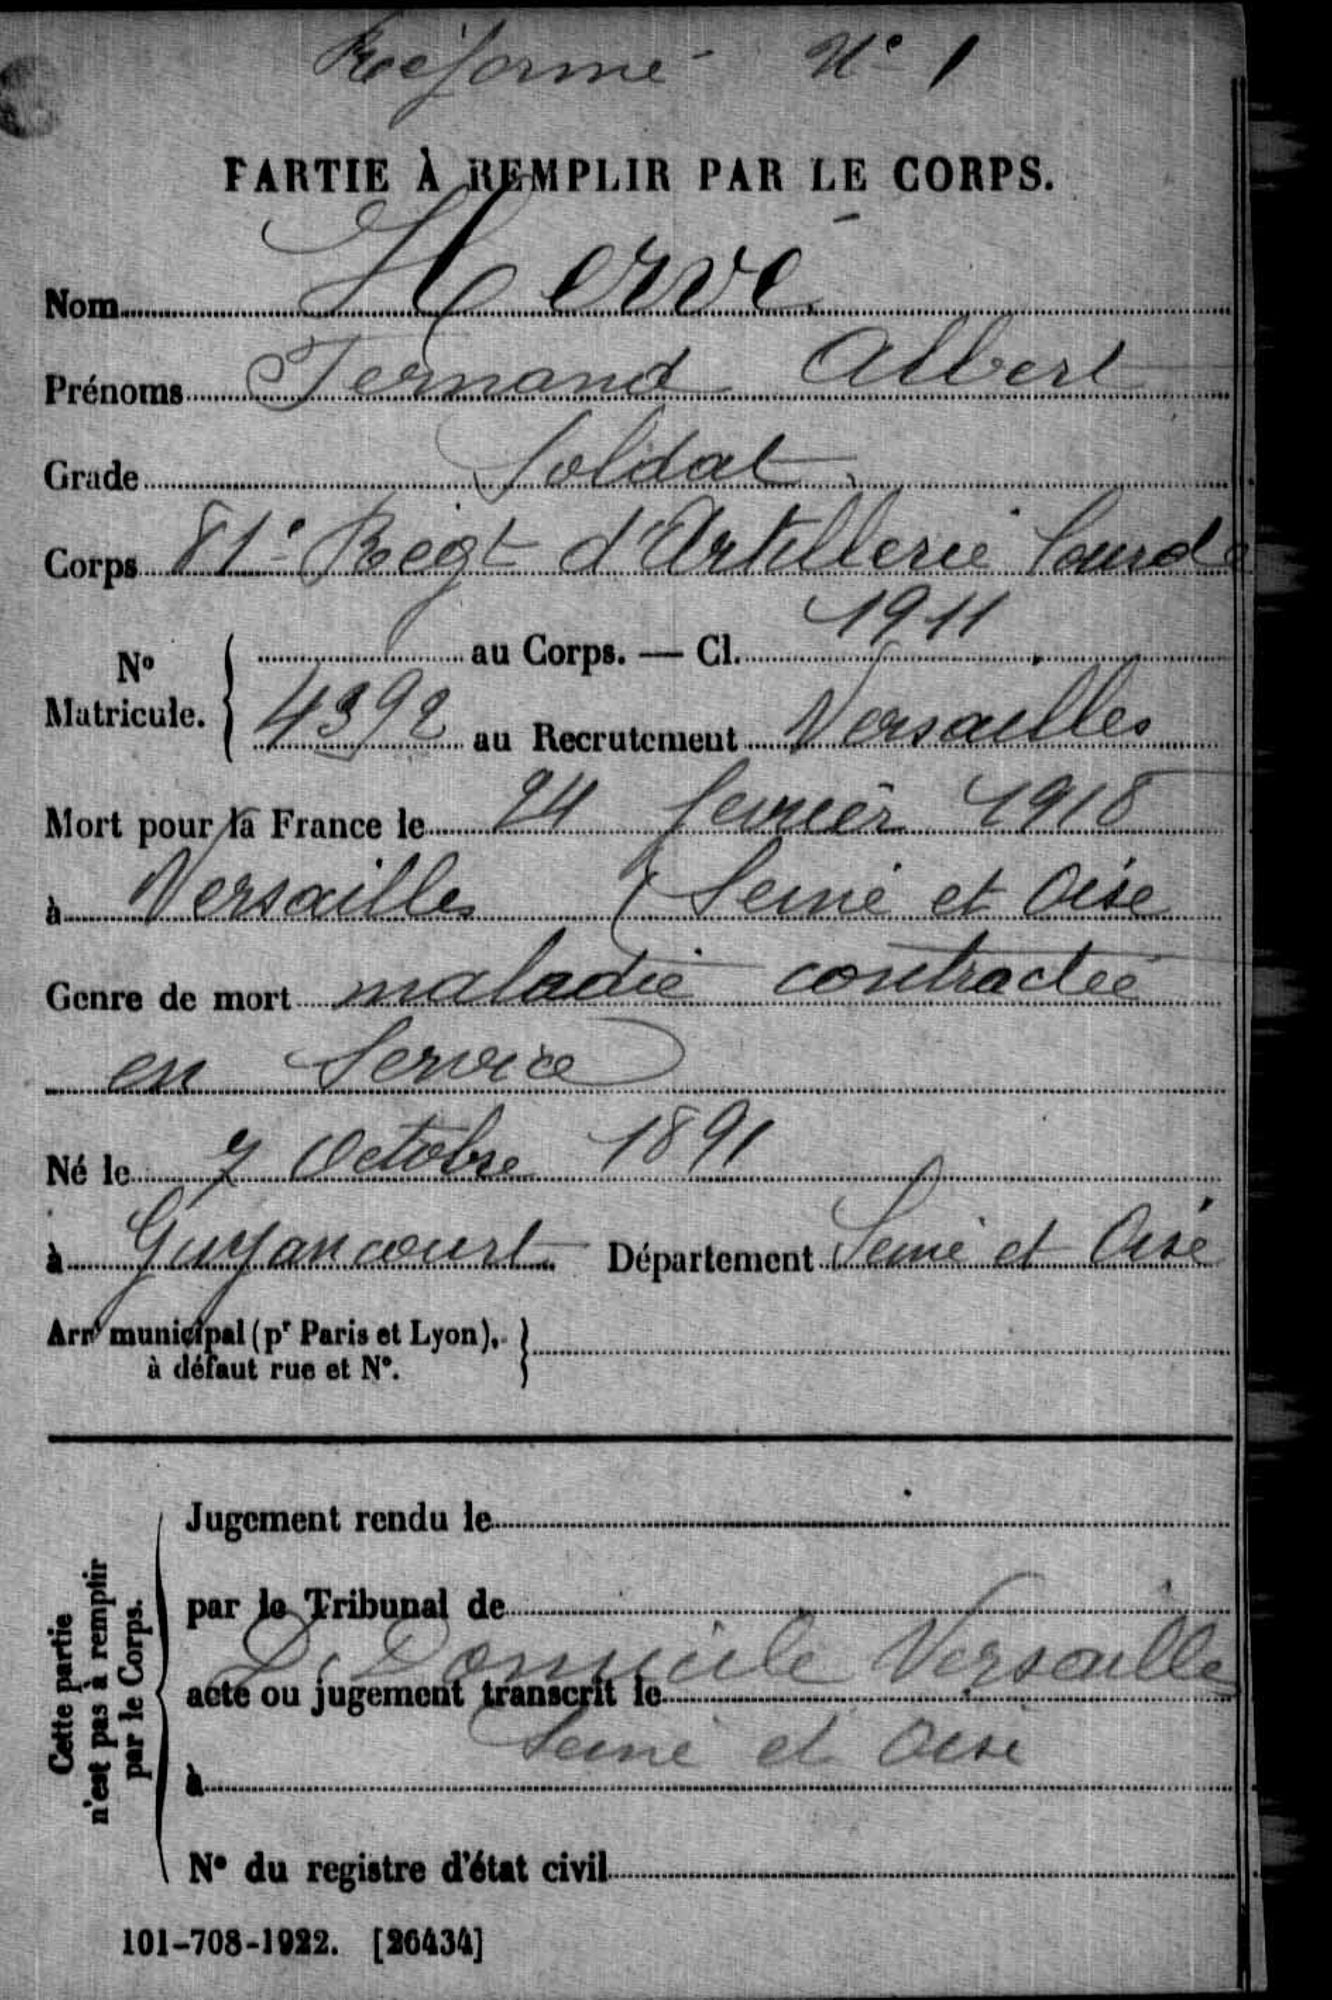 Réformé N° 1
PARTIE À REMPLIR PAR LE CORPS.
Nom Hervé
Prénoms Fernand Albert
Grade Soldat
Corps 81e Regt d'Artillerie Lourde
N° Matricule. { au Corps. — Cl. 1911
4392 au Recrutement Versailles
Mort pour la France le 24 février 1918
à Versailles (Seine et Oise
Genre de mort maladie contractée
en Service
Né le 7 Octobre 1891
à Guyancourt Département Seine et Oise
Arrt municipal (pr Paris et Lyon),
à défaut rue et N°.
Cette partie
n'est pas à remplir
par le Corps.
Jugement rendu le
par le Tribunal de
D. Domicile Versailles
acte ou jugement transcrit le
Seine et Oise
à
N° du registre d'état civil
101-708-1922. [26434]